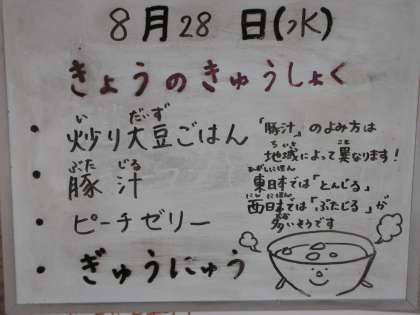 8月28日(水)
きょうのきゅうしょく
・炒り大豆ごはん
い だいず
・豚汁
ぶた じる
・ピーチゼリー
・ぎゅうにゅう
「豚汁」のよみ方は
地域によって異なります!
ちいき こと
東日本では「とんじる」
ひがしにほん
西日本では「ぶたじる」が
にしにほん
多いそうです
おお